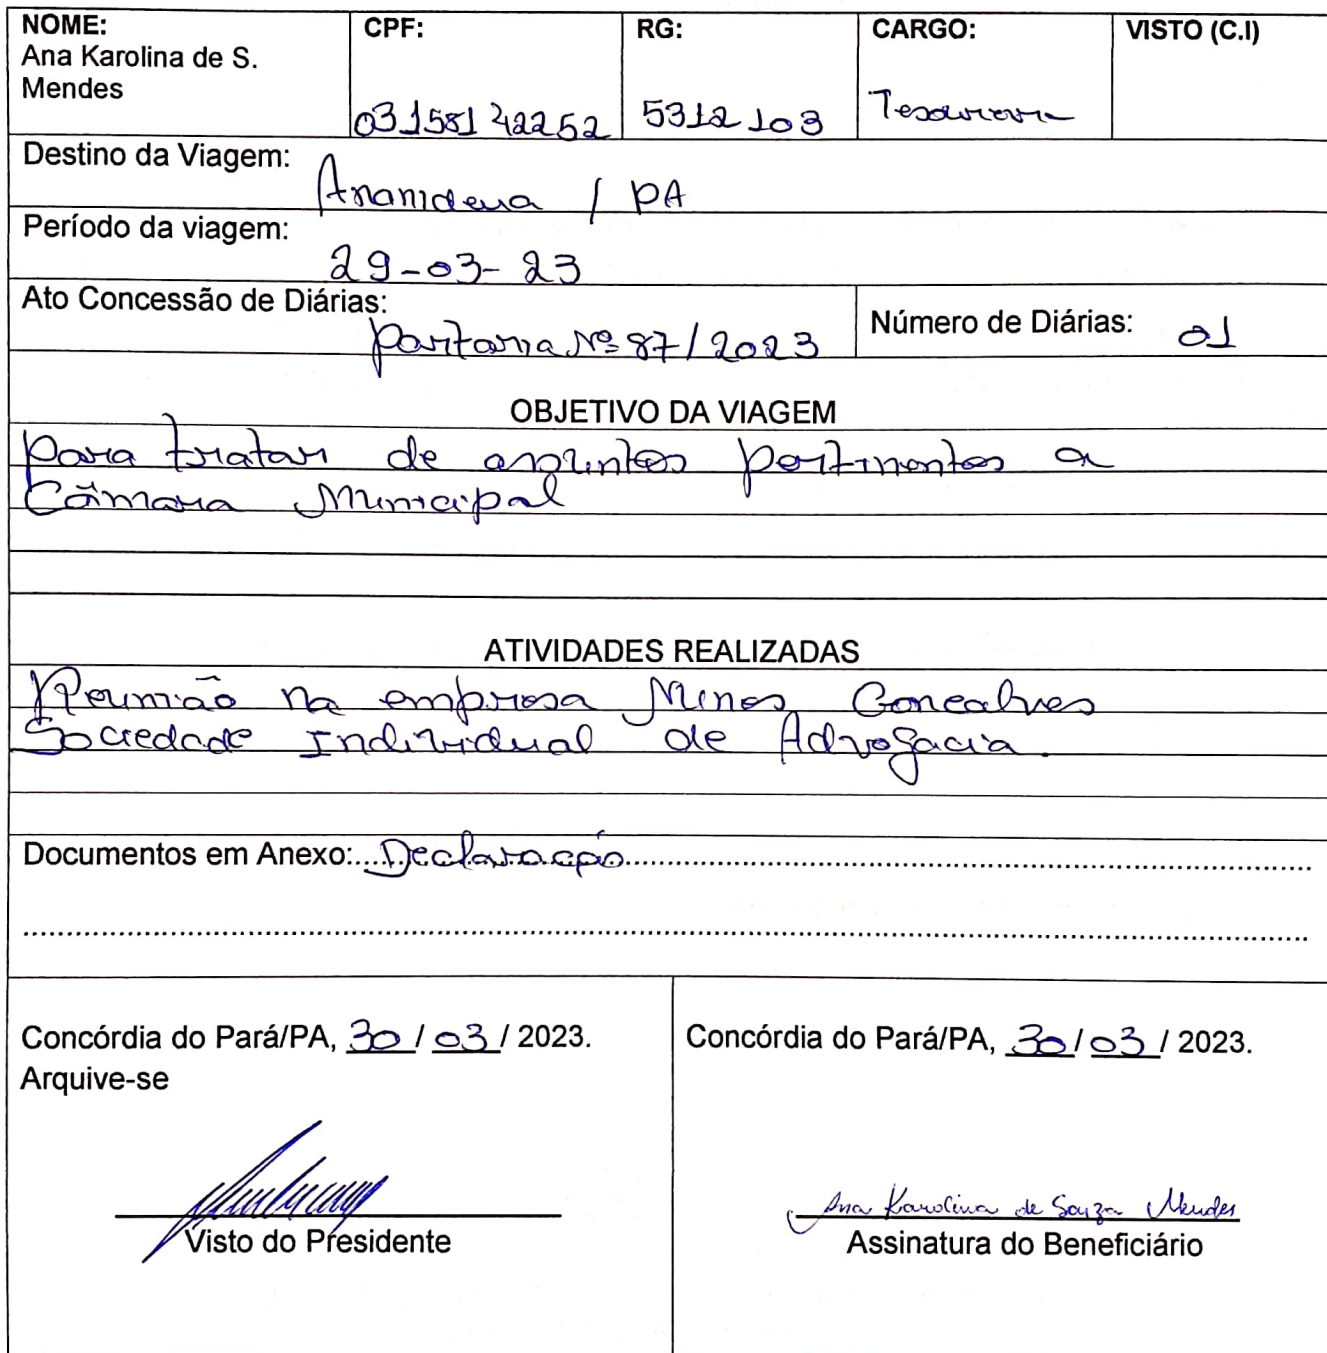 NOME: CPF: RG: CARGO: VISTO (C.I)
Ana Karolina de S.
Mendes
03158142252 5312103 Tesoureira
Destino da Viagem: Ananideua / PA
Período da viagem: 29-03-23
Ato Concessão de Diárias: portaria Nº 87/2023 Número de Diárias: 01
OBJETIVO DA VIAGEM
Para tratar de assuntos pertinentes a
Câmara Municipal
ATIVIDADES REALIZADAS
Reunião na empresa Nunes Goncalves
Sociedade Individual de Advogacia.
Documentos em Anexo: Declaração
Concórdia do Pará/PA, 30/03/2023.
Arquive-se
Visto do Presidente
Concórdia do Pará/PA, 30/03/2023.
Ana Karolina de Souza Mendes
Assinatura do Beneficiário